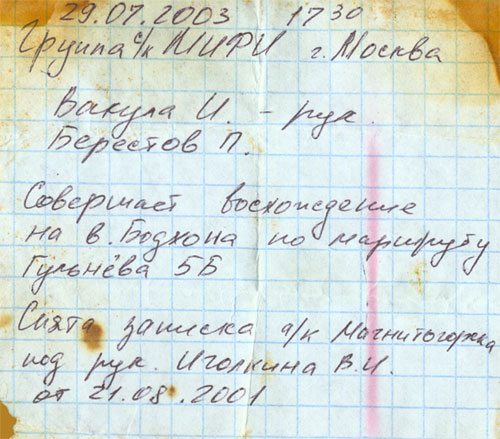 29.07.2003 17 30
Группа с/к МИФИ г. Москва
Вакула И. - рук.
Берестов П.
Совершает восхождение
на в. Бодхона по маршруту
Гульнёва 5Б
Снята записка а/к Магнитогорска
под рук. Иголкина В.И.
от 21.08.2001